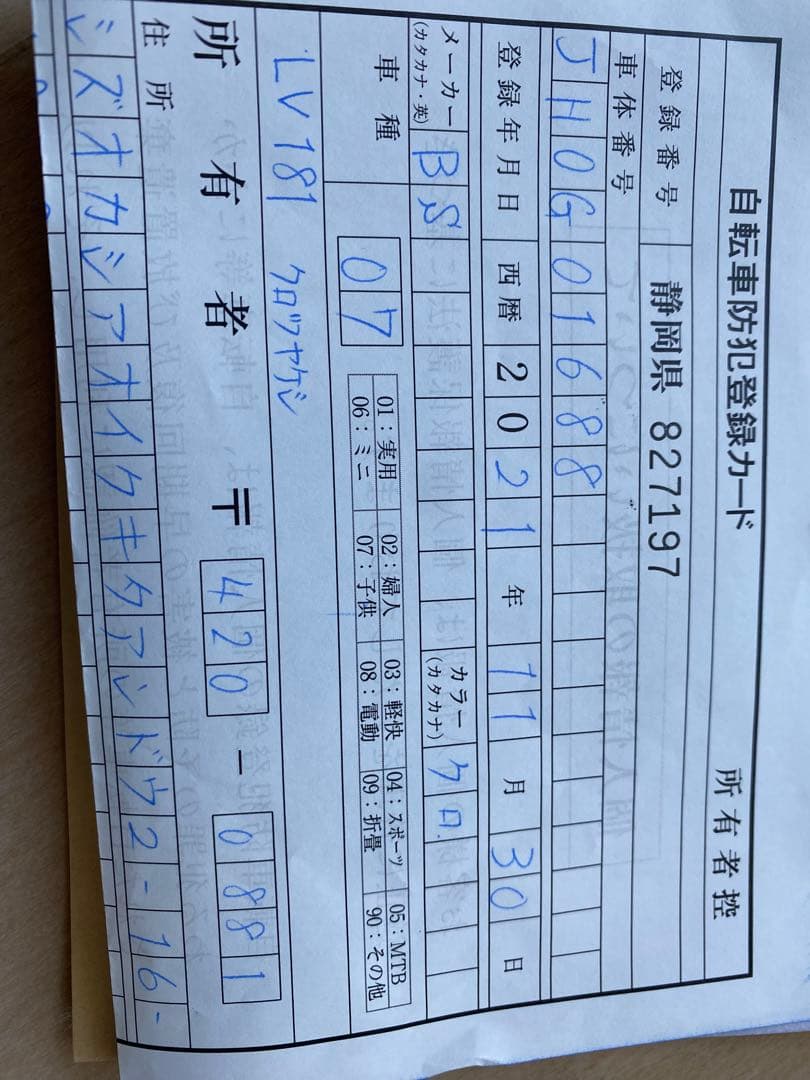 自転車防犯登録カード 所有者控
登録番号 静岡県 827197
車体番号
JH0G01688
登録年月日 西暦 2021年 11月 30日
メーカー BS カラー クロ.
(カタカナ・英) (カタカナ)
車種 07
01：実用 02：婦人 03：軽快 04：スポーツ 05：MTB
06：ミニ 07：子供 08：電動 09：折畳 90：その他
LV181 クロツヤケシ
所有者 〒 420-0881
住所
シズオカシアオイクキタアンドウ2-16-